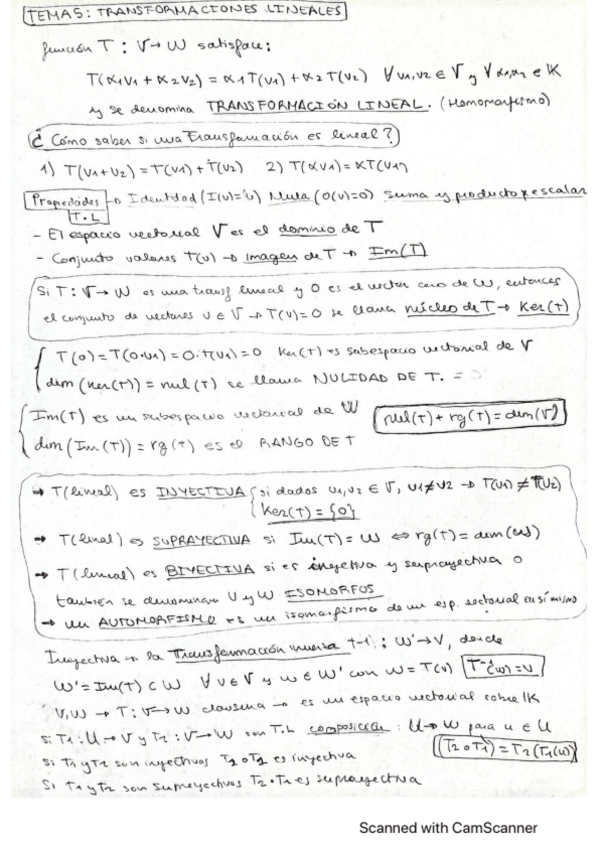 TEMA 5: TRANSFORMACIONES LINEALES
función T : V → W satisface:
T(α1v1 + α2v2) = α1T(v1) + α2T(v2) ∀ v1,v2 ∈ V y ∀ α1,α2 ∈ K
y se denomina TRANSFORMACIÓN LINEAL. (Homomorfismo)
¿Cómo saber si una transformación es lineal?
1) T(v1+v2) = T(v1) + T(v2) 2) T(αv1) = αT(v1)
Propiedades T.L → Identidad (I(v)=v) Nula (O(v)=0) suma y producto x escalar
- El espacio vectorial V es el dominio de T
- Conjunto valores T(v) → imagen de T → Im(T)
Si T : V → W es una transf lineal y 0 es el vector cero de W, entonces
el conjunto de vectores v ∈ V → T(v)=0 se llama núcleo de T → Ker(t)
T(0) = T(0·v1) = 0·T(v1) = 0 Ker(t) es subespacio vectorial de V
dim (Ker(T)) = nul(T) se llama NULIDAD DE T. =
Im(T) es un subespacio vectorial de W
nul(T) + rg(T) = dim(V)
dim(Im(T)) = rg(t) es el RANGO DE T
→ T(lineal) es INYECTIVA si dados v1,v2 ∈ V, v1≠v2 → T(v1) ≠ T(v2)
Ker(T) = {0}
→ T(lineal) es SUPRAYECTIVA si Im(T) = W ⇔ rg(T) = dim(W)
→ T(lineal) es BIYECTIVA si es inyectiva y suprayectiva o
también se denominan V y W ISOMORFOS
→ un AUTOMORFISMO es un isomorfismo de un esp. vectorial en sí mismo
Inyectiva → la Transformación inversa t-1 : W' → V, donde
W' = Im(T) ⊂ W ∀ v ∈ V y w ∈ W' con w = T(v) T-1(w) = v
V, W → T : V → W clausura → es un espacio vectorial sobre K
Si T1 : U → V y T2 : V → W son T.L composición : U → W para u ∈ U
(T2 o T1) = T2(T1(u))
Si T1 y T2 son inyectivas T2 o T1 es inyectiva
Si T1 y T2 son suprayectivas T2 o T1 es suprayectiva
Scanned with CamScanner